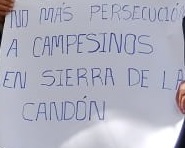 NO MÁS PERSECUCIÓ
A CAMPESINOS
EN SIERRA DE LA
CANDÓN